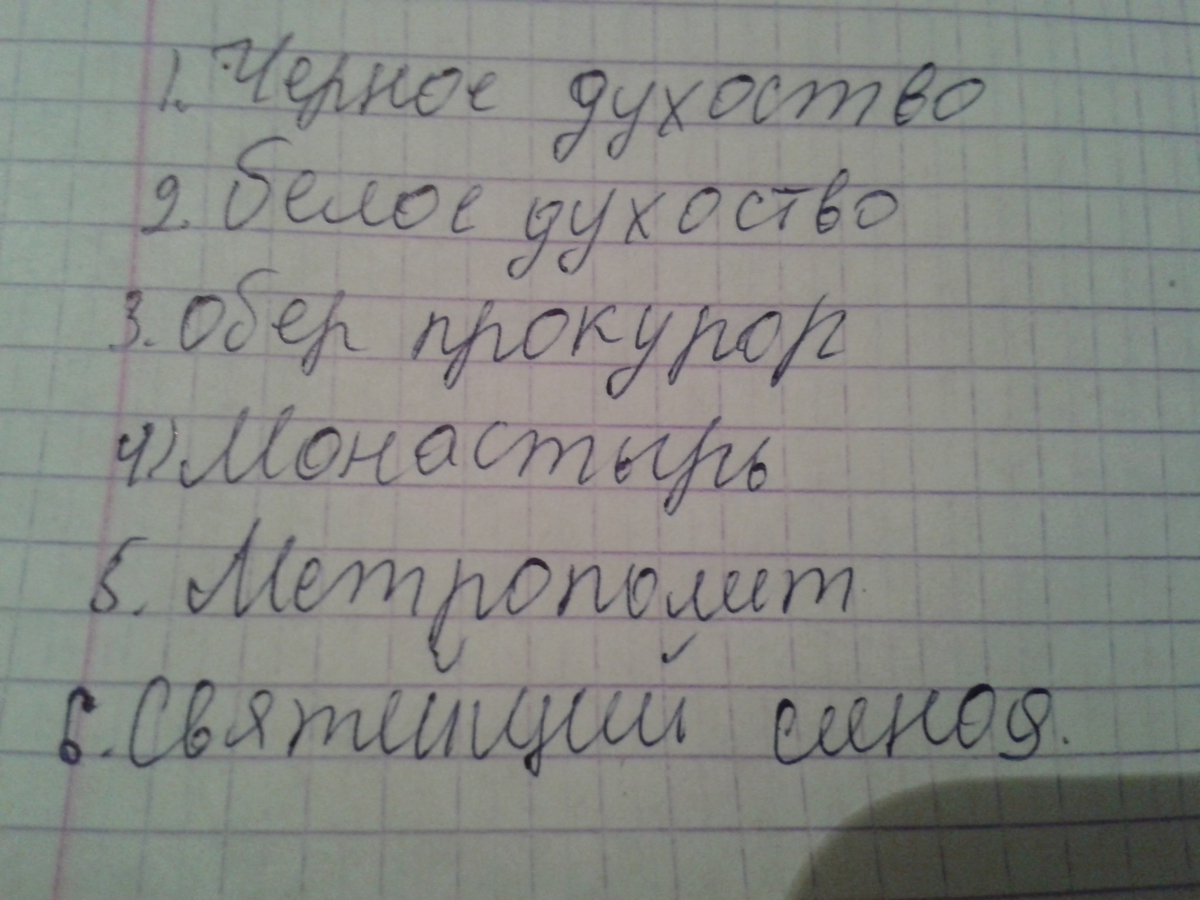 1. Черное духоство
2. Белое духоство
3. Обер прокурор
4) Монастырь
5. Метрополит
6. Святищий синод.